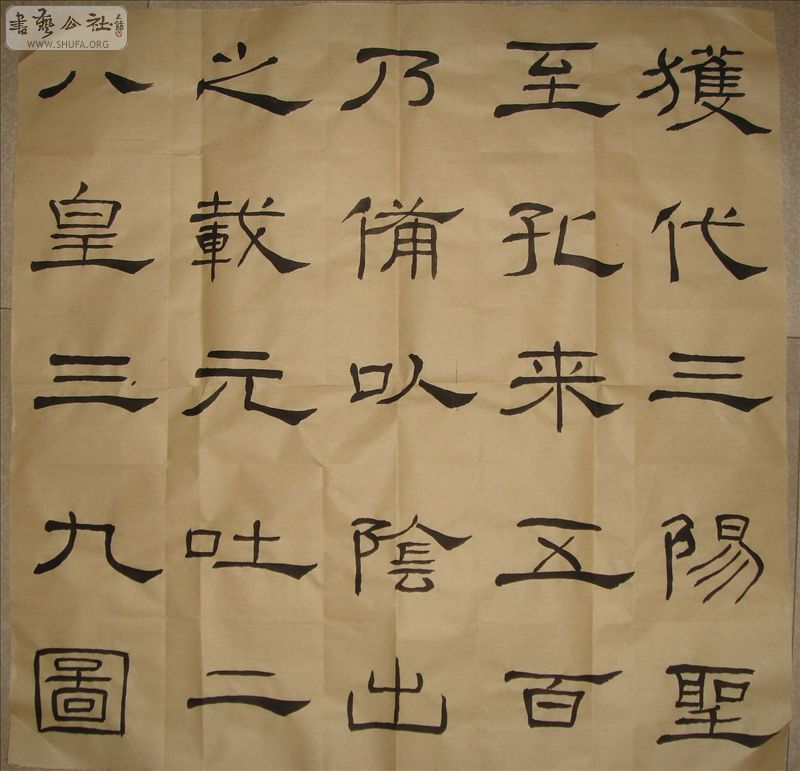 書藝公社
WWW.SHUFA.ORG
獲代三陽聖
至孔来五百
乃備以陰出
之載元吐二
八皇三九圖